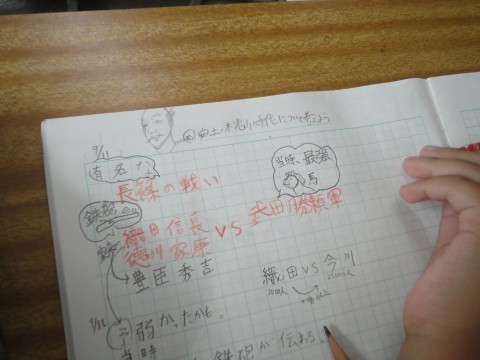 安土・桃山時代について考えよう
9/11
有名な
長篠の戦い
当時、最強
馬
鉄砲
織田信長
徳川家康
VS
武田勝頼軍
豊臣秀吉
織田VS今川
1/11
弱かったかも。
当時
鉄砲が伝わる。